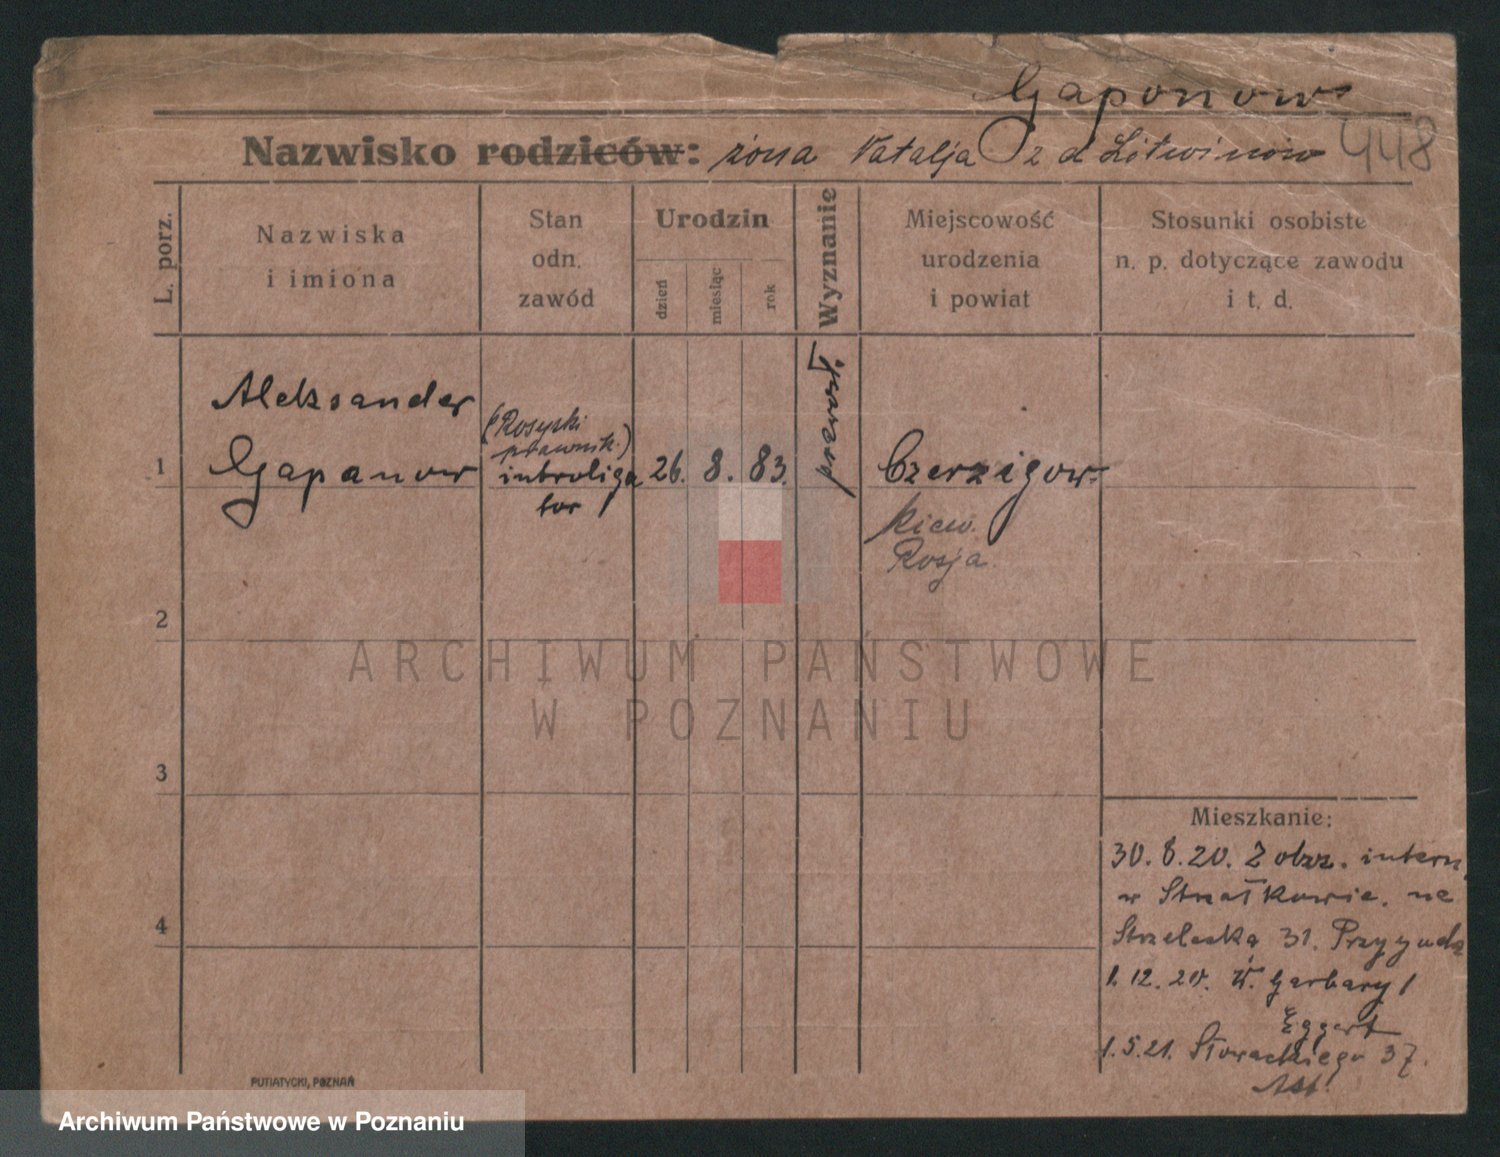 Gaponow
448
Nazwisko rodziców: żona Natalja z d Litwinow
L. porz.
Nazwiska
i imiona
Stan
odn.
zawód
Urodzin
dzień
miesiąc
rok
Wyznanie
Miejscowość
urodzenia
i powiat
Stosunki osobiste
n. p. dotyczące zawodu
i t. d.
1
Aleksander
Gapanow
(Rosyski
prawnik.)
introliga
tor
26. 8. 83.
prawosł.
Czernigow
Kiew.
Rosja.
2
3
4
Mieszkanie:
30. 8. 20. Z obz. intern.
w Strzałkowie. na
Strzelecką 31. Przygodz
1. 12. 20. W. Garbary 1
Eggert
1. 5. 21. Słowackiego 37.
PUTIATYCKI, POZNAŃ
ARCHIWUM PAŃSTWOWE
W POZNANIU
Archiwum Państwowe w Poznaniu